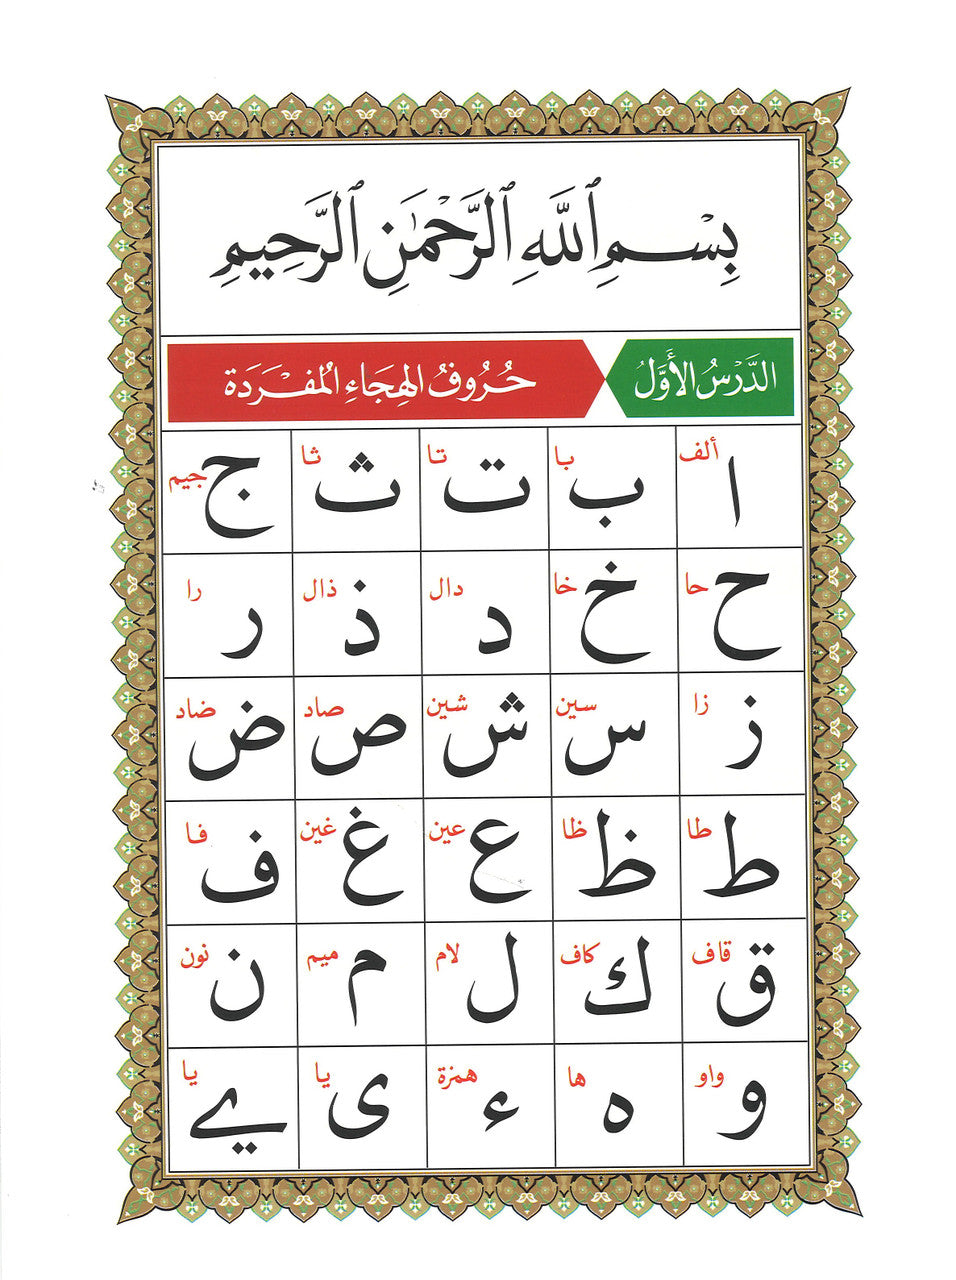 بِسْمِ ٱللَّهِ ٱلرَّحْمَٰنِ ٱلرَّحِيمِ
الدَّرْسُ الأَوَّلُ حُرُوفُ الهِجَاءِ المُفْرَدَة
ا ألف ب با ت تا ث ثا ج جيم
ح حا خ خا د دال ذ ذال ر را
ز زا س سين ش شين ص صاد ض ضاد
ط طا ظ ظا ع عين غ غين ف فا
ق قاف ك كاف ل لام م ميم ن نون
و واو ه ها ء همزة ى يا ي يا